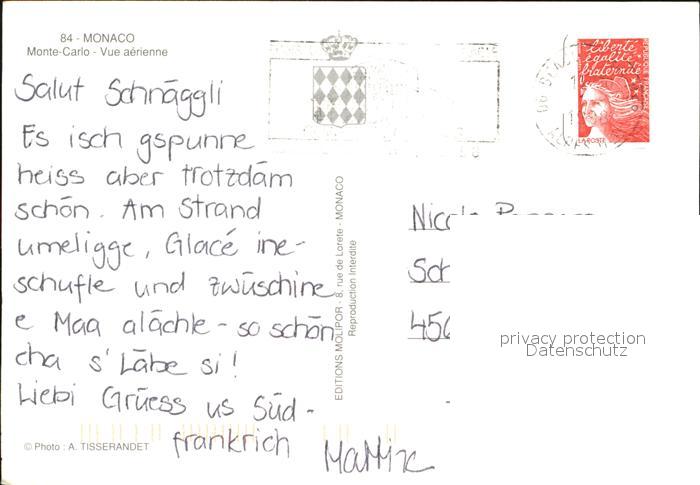 84 - MONACO
Monte-Carlo - Vue aérienne
Salut Schnäggli
Es isch gspunne
heiss aber trotzdäm
schön. Am Strand
umeligge, Glacé ine-
schufle und zwüschine
e Maa alächle - so schön
cha s' Läbe si!
Liebi Grüess us Süd-
frankrich
© Photo : A. TISSERANDET
EDITIONS MOLIPOR - 8, rue de Lorete - MONACO
Reproduction Interdite
liberté
égalité
fraternité
LA POSTE
Nic
Sch
456
privacy protection
Datenschutz